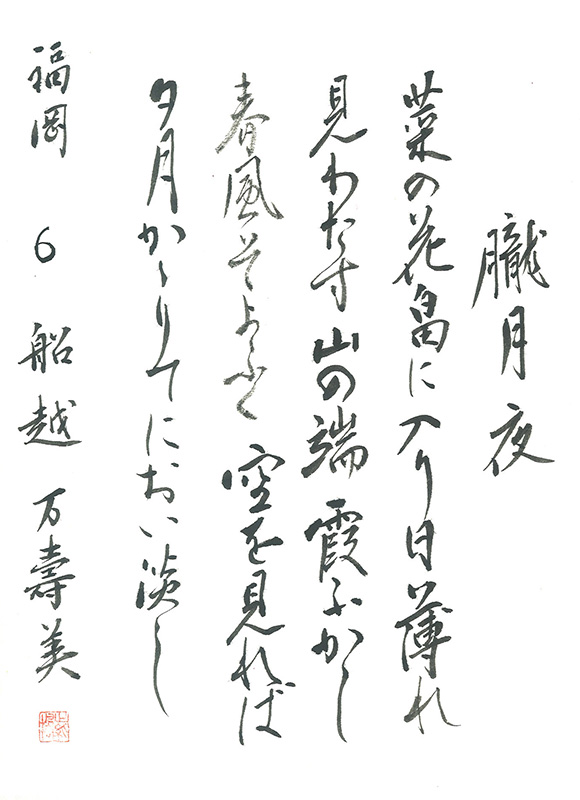 朧月夜
菜の花畠に 入り日薄れ
見わたす 山の端 霞ふかし
春風そよふく 空を見れば
夕月かゝりて におい淡し
福岡 6 船越 万壽美